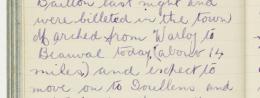 Baillon last night and
were billeted in the town
of arched from Warloy to
Beauval today. (about 14
miles) and expect to
move on to Doullens and